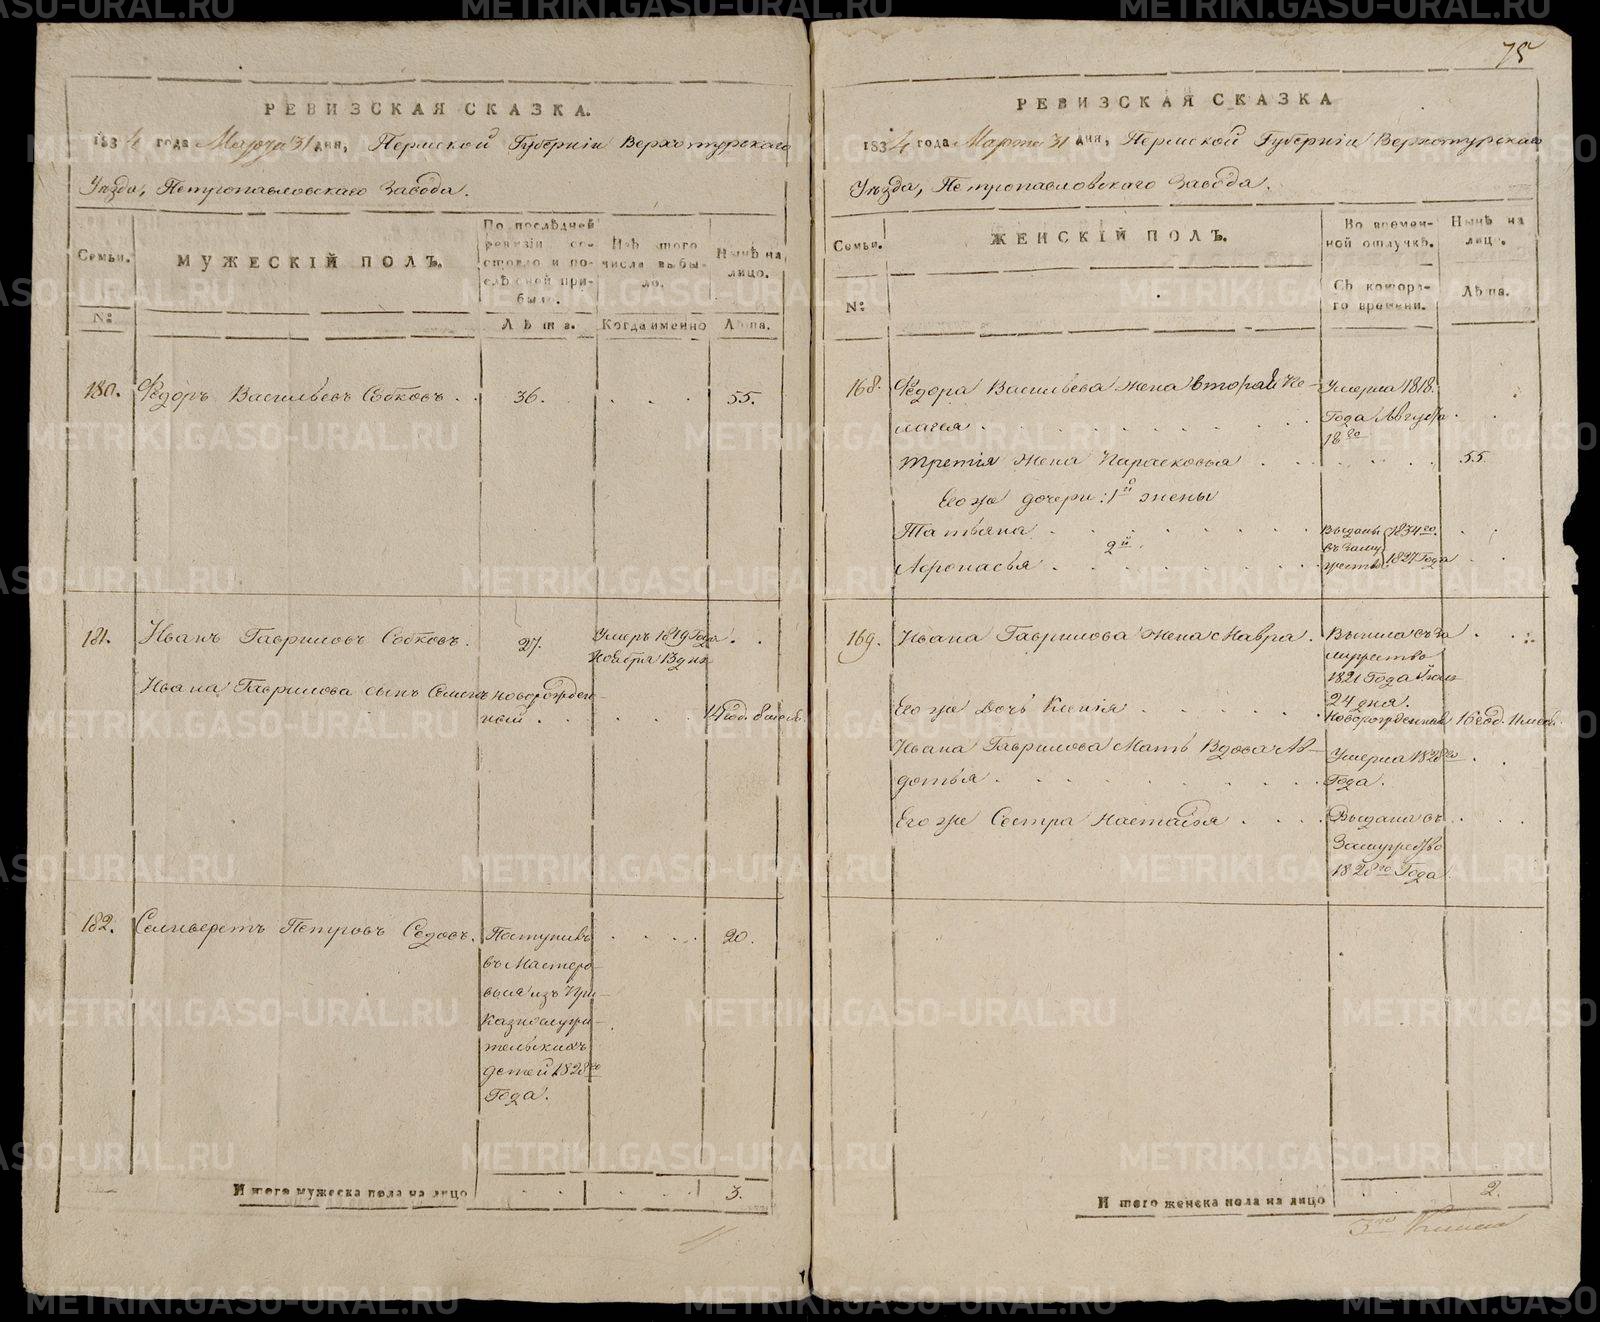 75
РЕВИЗСКАЯ СКАЗКА.
1834 года Марта 31 дня, Пермской Губерніи Верхотурскаго
Уѣзда, Петропавловскаго Завода.
Семьи.
МУЖЕСКІЙ ПОЛЪ.
По послѣдней
ревизіи со-
стояло и по-
слѣ оной при-
было.
Изъ этого
числа выбы-
ло.
Нынѣ на
лицо.
№:
Лѣта.
Когда именно
Лѣта.
180.
Ѳедоръ Васильевъ Собковъ . .
36.
55.
181.
Иванъ Гавриловъ Собковъ.
27.
Умеръ 1819 Года
Ноября 13 дня
Ивана Гаврилова сынъ Семенъ
новорожден-
ный .
14 год. 8 месяц.
182.
Селиверстъ Петровъ Седовъ.
Поступилъ
въ Мастеро-
выя изъ При-
казнослужи-
тельскихъ
детей 1828го
Года.
20.
И того мужеска пола на лицо
3.
РЕВИЗСКАЯ СКАЗКА
1834 года Марта 31 дня, Пермской Губерніи Верхотурскаго
Уѣзда, Петропавловскаго Завода.
Семьи.
ЖЕНСКІЙ ПОЛЪ.
Во времен-
ной отлучкѣ.
Нынѣ на
лицо.
№:
Съ котора-
го времени.
Лѣта.
168.
Ѳедора Васильева жена вторая Пе-
лагея
Умерла 1818.
Года Августа
18го
третія жена Парасковья
55.
Его же дочери: 1й жены
Татьяна
2й.
Афонасья
Выданы
въ заму
жество
1834го.
1827 Года
169.
Ивана Гаврилова жена Мавра.
Вышла въ за
мужество
1821 Года
24 дня.
Его же Дочь Ксенія
Новорожденная
16 год. 11 месяц.
Ивана Гаврилова Мать Вдова Ав-
дотья
Умерла 1828го
Года.
Его же Сестра Настасья
Выдана въ
Замужество
1828го Года
И того женска пола на лицо
2.
METRIKI.GASO-URAL.RU